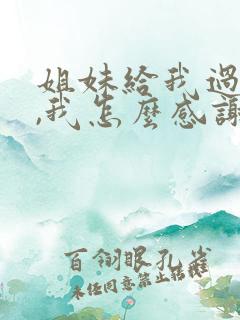 姐妹给我過
,我怎麽感謝
百翎眼孔雀
未经同意禁止转载